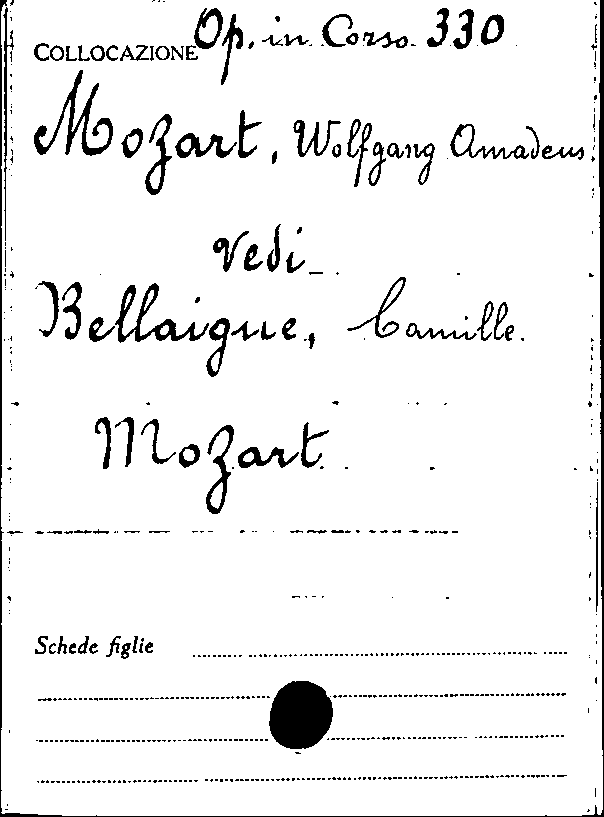 COLLOCAZIONE Op. in Corso 330
Mozart, Wolfgang Amadeus.
Vedi
Bellaigue, Camille.
Mozart.
Schede figlie